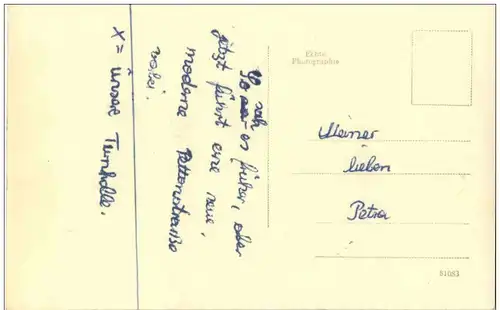 So sah
es früher, aber
jetzt führt eine neue,
moderne Bettonstraße
vorbei.
X = Unsere Turnhalle.
Echte
Photographie
Meiner
lieben
Petra
51083